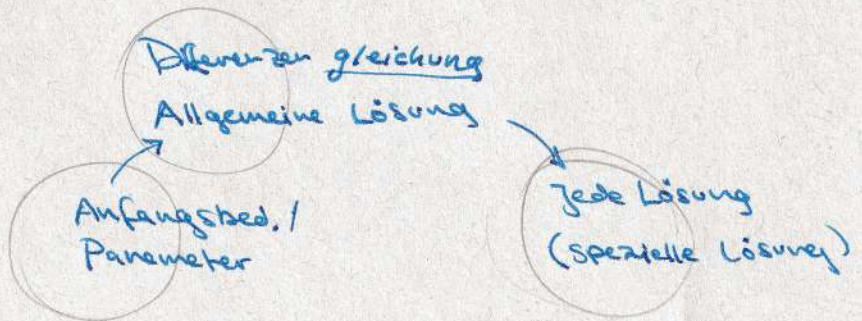 Differenzen gleichung
Allgemeine Lösung
Anfangsbed. /
Parameter
Jede Lösung
(spezielle Lösung)